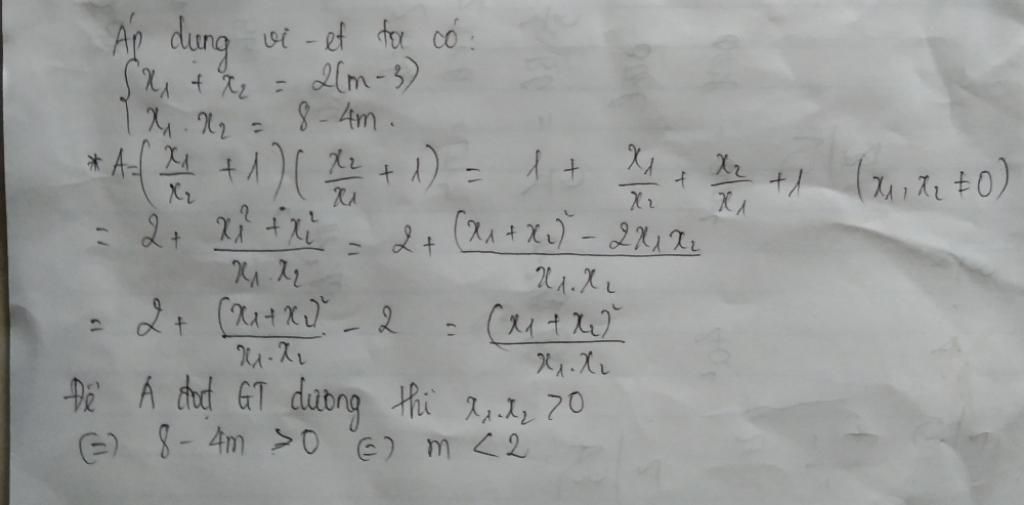 Áp dụng vi-et ta có:
{ x₁ + x₂ = 2(m-3)
x₁ . x₂ = 8 - 4m.
* A = (x₁/x₂ + 1)(x₂/x₁ + 1) = 1 + x₁/x₂ + x₂/x₁ + 1 (x₁, x₂ ≠ 0)
= 2 + (x₁² + x₂²)/(x₁ . x₂) = 2 + ((x₁ + x₂)² - 2x₁x₂)/(x₁ . x₂)
= 2 + (x₁ + x₂)²/(x₁ . x₂) - 2 = (x₁ + x₂)²/(x₁ . x₂)
Để A đạt GT dương thì x₁ . x₂ > 0
(=) 8 - 4m > 0 (=) m < 2